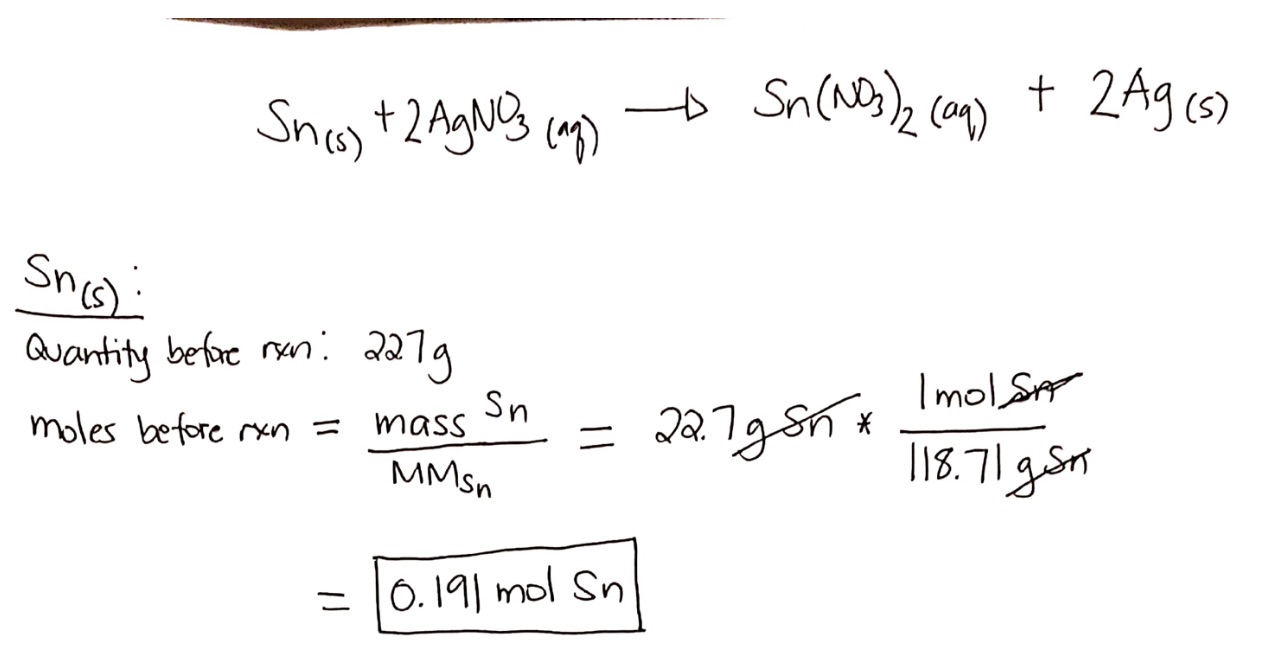 Sn(s) + 2AgNO3 (aq) → Sn(NO3)2 (aq) + 2Ag (s)
Sn(s) :
Quantity before rxn: 227g
moles before rxn = mass Sn / MMSn = 22.7g Sn * 1 mol Sn / 118.71 g Sn
= 0.191 mol Sn